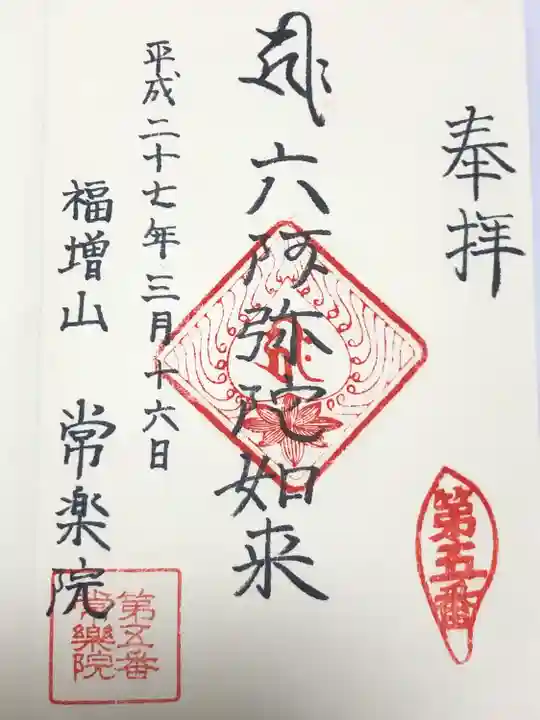 奉拝
第五番
六阿弥陀如来
平成二十七年三月十六日
福増山 常楽院
第五番
常樂院